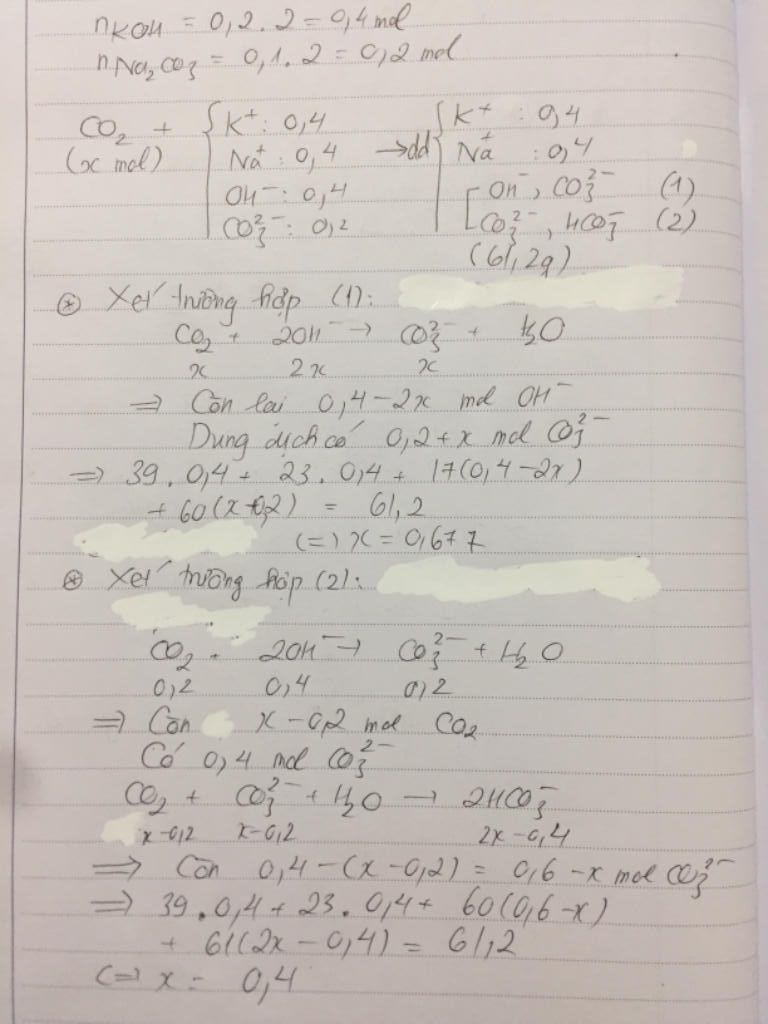 nKOH = 0,2 . 2 = 0,4 mol
nNa2CO3 = 0,1 . 2 = 0,2 mol
CO2 + { K+ : 0,4 { K+ : 0,4
(x mol) Na+ : 0,4 → dd Na+ : 0,4
OH− : 0,4 [ OH−, CO3^2− (1)
CO3^2− : 0,2 CO3^2−, HCO3− (2)
(61,2g)
⊛ Xét trường hợp (1):
CO2 + 2OH− → CO3^2− + H2O
x 2x x
⇒ Còn lại 0,4 − 2x mol OH−
Dung dịch có 0,2 + x mol CO3^2−
⇒ 39 . 0,4 + 23 . 0,4 + 17(0,4 − 2x)
+ 60(x + 0,2) = 61,2
(=) x = 0,677
⊛ Xét trường hợp (2):
CO2 + 2OH− → CO3^2− + H2O
0,2 0,4 0,2
⇒ Còn x − 0,2 mol CO2
Có 0,4 mol CO3^2−
CO2 + CO3^2− + H2O → 2HCO3−
x − 0,2 x − 0,2 2x − 0,4
⇒ Còn 0,4 − (x − 0,2) = 0,6 − x mol CO3^2−
⇒ 39 . 0,4 + 23 . 0,4 + 60(0,6 − x)
+ 61(2x − 0,4) = 61,2
(=) x = 0,4